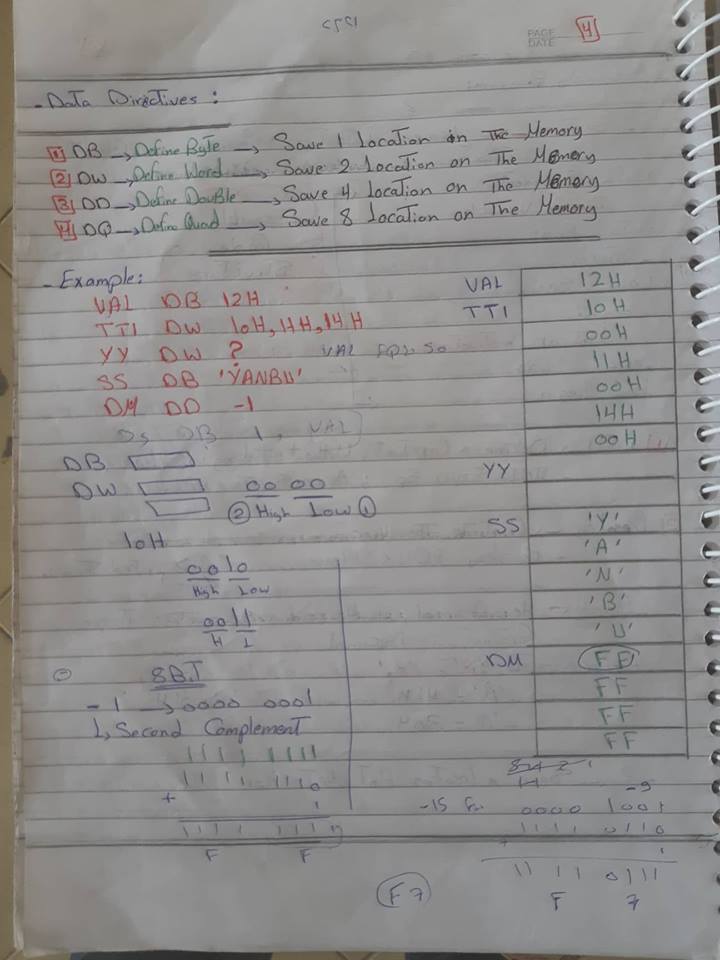 PAGE 4
DATE
- Data Directives :
1 DB → Define Byte → Save 1 Location on The Memory
2 DW → Define Word → Save 2 Location on The Memory
3 DD → Define Double → Save 4 Location on The Memory
4 DQ → Define Quad → Save 8 Location on The Memory
- Example:
VAL DB 12H
TT1 DW 10H, 11H, 14H
YY DW ?
VAL EQU 50
SS DB 'YANBU'
DM DD -1
DB 1, VAL
DB
DW
00 00
② High Low ①
10H
0010
High Low
0011
H L
8BiT
-1 → 0000 0001
Second Complement
1111 1111
1111 1110
+ 1
1111 1111
F F
VAL 12H
TT1 10H
00H
11H
00H
14H
00H
YY
SS 'Y'
'A'
'N'
'B'
'U'
DM FF
FF
FF
FF
-9
-15
0000 1001
1111 0110
+ 1
1111 0111
F 7
F7